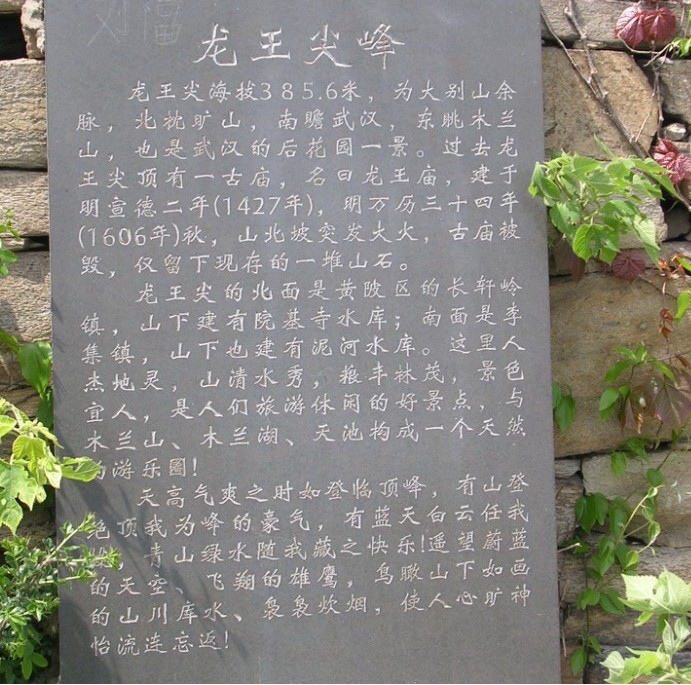 龙王尖峰
龙王尖海拔385.6米，为大别山余
脉，北桄旷山，南瞻武汉，东眺木兰
山，也是武汉的后花园一景。过去龙
王尖顶有一古庙，名曰龙王庙，建于
明宣德二年(1427年)，明万历三十四年
(1606年)秋，山北坡突发大火，古庙被
毁，仅留下现存的一堆山石。
龙王尖的北面是黄陂区的长轩岭
镇，山下建有院基寺水库；南面是李
集镇，山下也建有泥河水库。这里人
杰地灵，山清水秀，粮丰林茂，景色
宜人，是人们旅游休闲的好景点，与
木兰山、木兰湖、天池构成一个天然
的游乐圈！
天高气爽之时如登临顶峰，有山登
绝顶我为峰的豪气，有蓝天白云任我
青山绿水随我藏之快乐！遥望蔚蓝
的天空、飞翔的雄鹰，鸟瞰山下如画
的山川库水、袅袅炊烟，使人心旷神
怡流连忘返！